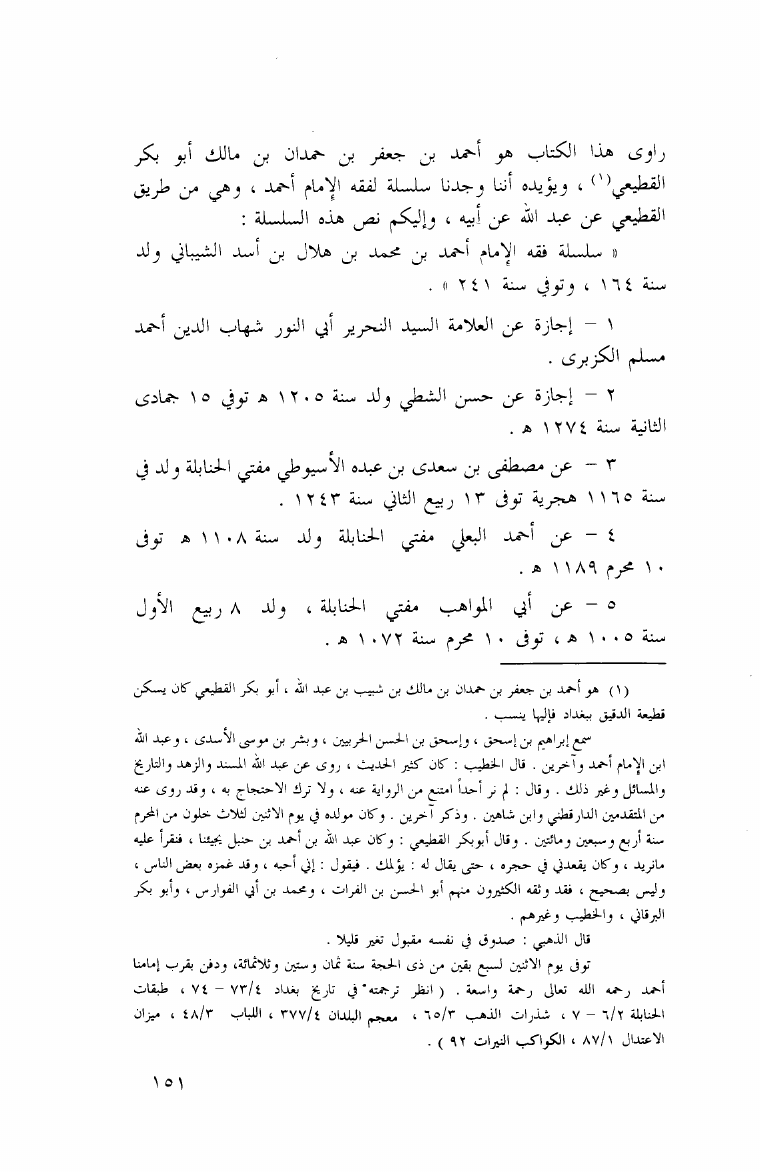 راوى هذا الكتاب هو أحمد بن جعفر بن حمدان بن مالك أبو بكر
القطيعي(١) ، ويؤيده أننا وجدنا سلسلة لفقه الإمام أحمد ، وهي من طريق
القطيعي عن عبد الله عن أبيه ، وإليكم نص هذه السلسلة :
« سلسلة فقه الإمام أحمد بن محمد بن هلال بن أسد الشيباني ولد
سنة ١٦٤ ، وتوفي سنة ٢٤١ » .
١ - إجازة عن العلامة السيد النحرير أبي النور شهاب الدين أحمد
مسلم الكزبرى .
٢ - إجازة عن حسن الشطي ولد سنة ١٢٠٥ هـ توفي ١٥ جمادى
الثانية سنة ١٢٧٤ هـ .
٣ - عن مصطفى بن سعدى بن عبده الأسيوطي مفتي الحنابلة ولد في
سنة ١١٦٥ هجرية توفى ١٣ ربيع الثاني سنة ١٢٤٣ .
٤ - عن أحمد البعلي مفتي الحنابلة ولد سنة ١١٠٨ هـ توفى
١٠ محرم ١١٨٩ هـ .
٥ - عن أبي المواهب مفتي الحنابلة ، ولد ٨ ربيع الأول
سنة ١٠٠٥ هـ ، توفى ١٠ محرم سنة ١٠٧٢ هـ .
(١) هو أحمد بن جعفر بن حمدان بن مالك بن شبيب بن عبد الله ، أبو بكر القطيعي كان يسكن
قطيعة الدقيق ببغداد فإليها ينسب .
سمع إبراهيم بن إسحق ، وإسحق بن الحسن الحربيين ، وبشر بن موسى الأسدى ، وعبد الله
ابن الإمام أحمد وآخرين . قال الخطيب : كان كثير الحديث ، روى عن عبد الله المسند والزهد والتاريخ
والمسائل وغير ذلك . وقال : لم نر أحداً امتنع من الرواية عنه ، ولا ترك الاحتجاج به ، وقد روى عنه
من المتقدمين الدارقطني وابن شاهين . وذكر آخرين . وكان مولده في يوم الاثنين لثلاث خلون من المحرم
سنة أربع وسبعين ومائتين . وقال أبوبكر القطيعي : وكان عبد الله بن أحمد بن حنبل يجيئنا ، فنقرأ عليه
مانريد ، وكان يقعدني في حجره ، حتى يقال له : يؤلمك . فيقول : إني أحبه ، وقد غمزه بعض الناس ،
وليس بصحيح ، فقد وثقه الكثيرون منهم أبو الحسن بن الفرات ، ومحمد بن أبي الفوارس ، وأبو بكر
البرقاني ، والخطيب وغيرهم .
قال الذهبي : صدوق في نفسه مقبول تغير قليلا .
توفى يوم الاثنين لسبع بقين من ذى الحجة سنة ثمان وستين وثلاثمائة، ودفن بقرب إمامنا
أحمد رحمه الله تعالى رحمة واسعة . ( انظر ترجمته في تاريخ بغداد ٧٣/٤ - ٧٤ ، طبقات
الحنابلة ٦/٢ - ٧ ، شذرات الذهب ٦٥/٣ ، معجم البلدان ٣٧٧/٤ ، اللباب ٤٨/٣ ، ميزان
الاعتدال ٨٧/١ ، الكواكب النيرات ٩٢ ) .
١٥١